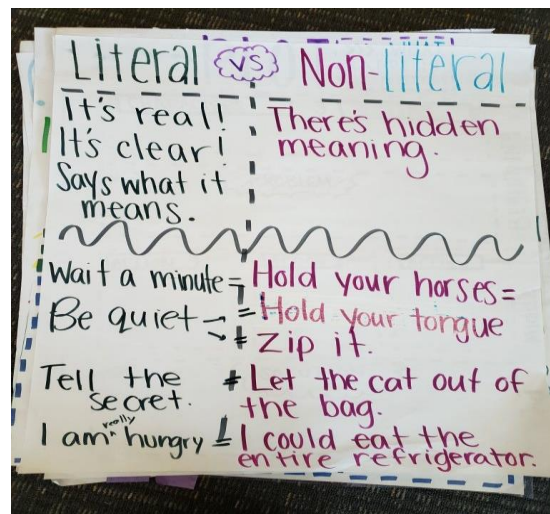 Literal vs Non-Literal
It's real!
It's clear!
Says what it
means.
There's hidden
meaning.
Wait a minute = Hold your horses =
Be quiet → = Hold your tongue
→ = Zip it.
Tell the = Let the cat out of
secret. the bag.
I am really hungry = I could eat the
entire refrigerator.